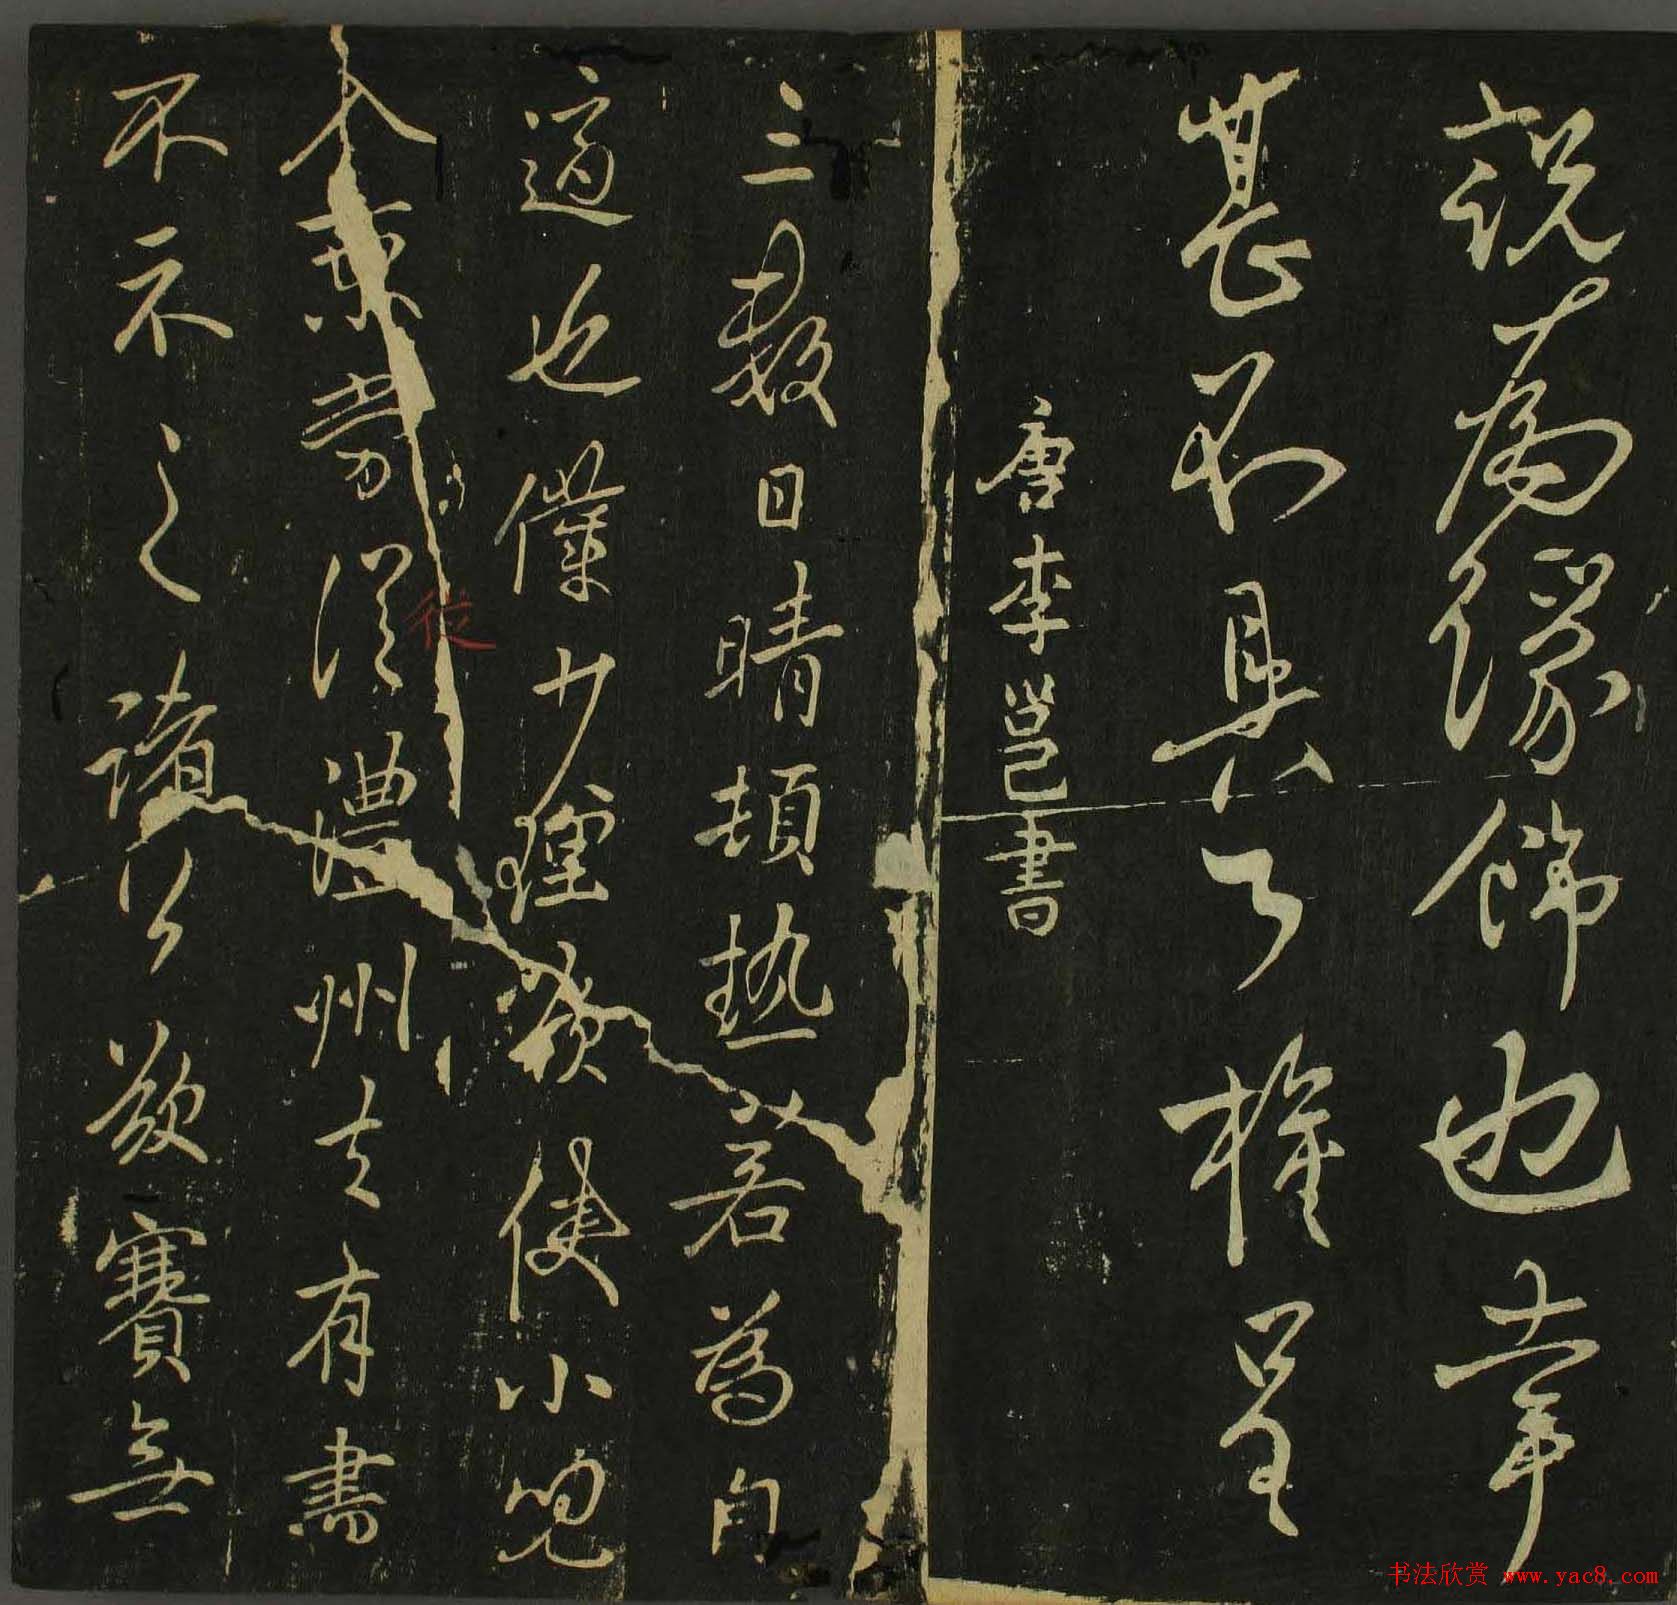 說為緣飾也幸
甚不具權呈
唐李邕書
三數日晴頓熱若為自
適也僕少理使小兒
入從澧州去有書
従
不示之諸公欲賽無
书法欣赏 www.yac8.com